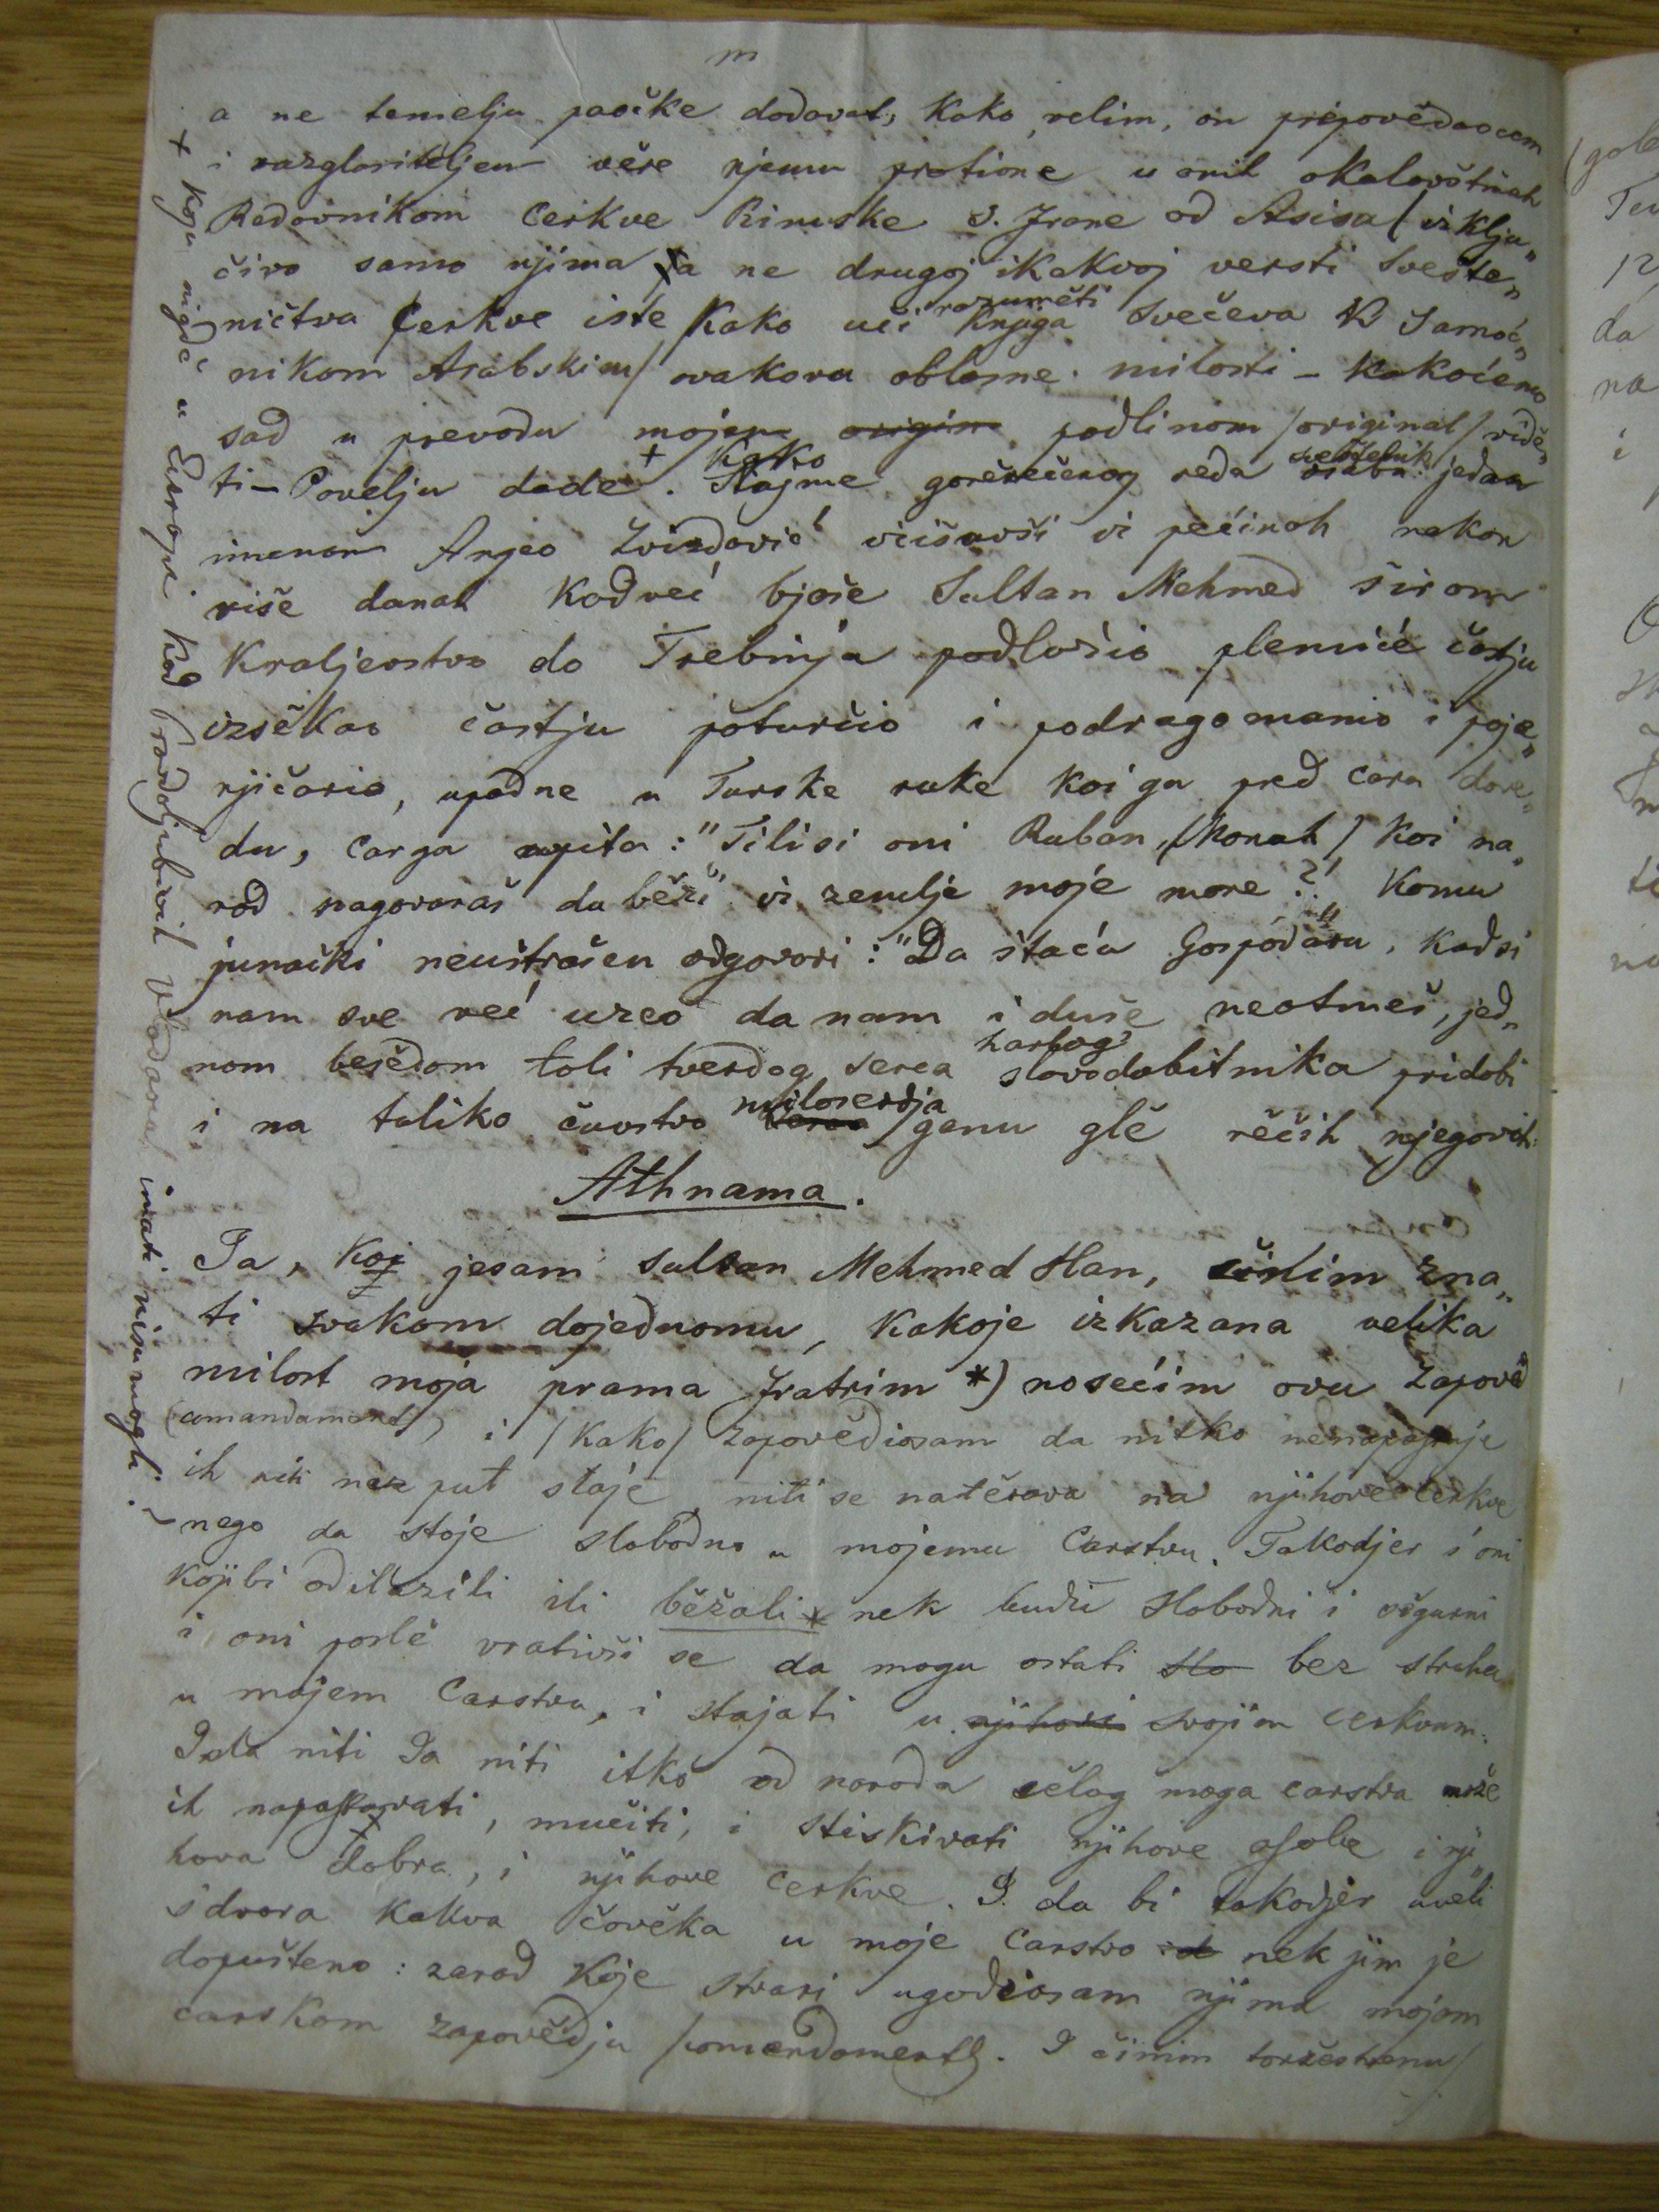 m
a ne temelju pačke dodavat, Kako, velim, on pripovědaocem
i razglasiteljem věre njemu protivne u onih okolovštinah
Redovnikom Cerkve Rimske S. Frane od Asisa / izklju„
čivo samo njima, a ne drugoj ikakvoj versti svešte„
ničtva Cerkve iste Kako uči razuměti Knjiga Svečeva K Samoć„
nikom Arabskim / ovakova oblasne milosti – Kakoćemo
sad u prevodu mojem origin podlinom / original / vidě„
ti – Povelju dade +. Kako Najme gorěrečenog reda sveštenik osaba jedan
imenom Anjeo Zvizdović izišavši iz pećinah nakon
više danah Kadveć bjaše Sultan Mehmed širom
Kraljevstvo do Trebinja podložio plemiće častju
izsěkao častju poturčio i podragomanio i poja„
njičario, upadne u Turske ruke koi ga pred cara dove„
du, carga upita: "Tilisi oni Ruban, / Monah / Koi na„
rod nagovaraš da běži iz zemlje moje more?! Komu
junački neustrašen odgovori: "Da štaću Gospodaru, Kadsi
nam sve već uzeo da nam i duše neotmeš, jed„
nom besědom toli tverdog serca harbog slavodobitnika pridobi
i na toliko čuvstvo miloserdja ganu glě rěčih njegovih:
Athnama.
Ja, Koj jesam sultan Mehmed Han, činim zna„
ti svakom dojednomu, Kakoje izkazana velika
milost moja prama Fratrim *) nosećim ovu Zapověd
(comandament) i / Kako / zapovědiosam da nitko nenapastuje
ih niti naz put staje, niti se natěrava na njihove cerkve
nego da stoje slobodno u mojemu Carstvu. Takodjer i oni
kojibi odilazili ili běžali * nek budu slobodni i ošgurni
i oni poslě vrativši se da mogu ostati slo bez straha
u mojem Carstvu, i stajati u njihovi svojim cerkvam.
I da niti Ja niti itko od naroda cělog moga carstva može
ih napastovati, mučiti, i stiskivati njihove osobe i nji„
hova dobra, i njihove cerkve. I da bi takodjer uveli
s'dvora Kakva čověka u moje Carstvo d nek jim je
dopušteno: zarad Koje stvari ugodiosam njima mojom
carskom zapovědju / comendament /. I činim toržestvenu /
+ Koju nigdě u Europi Kod Pravdoljubivih Vladarah imati nisu mogli.